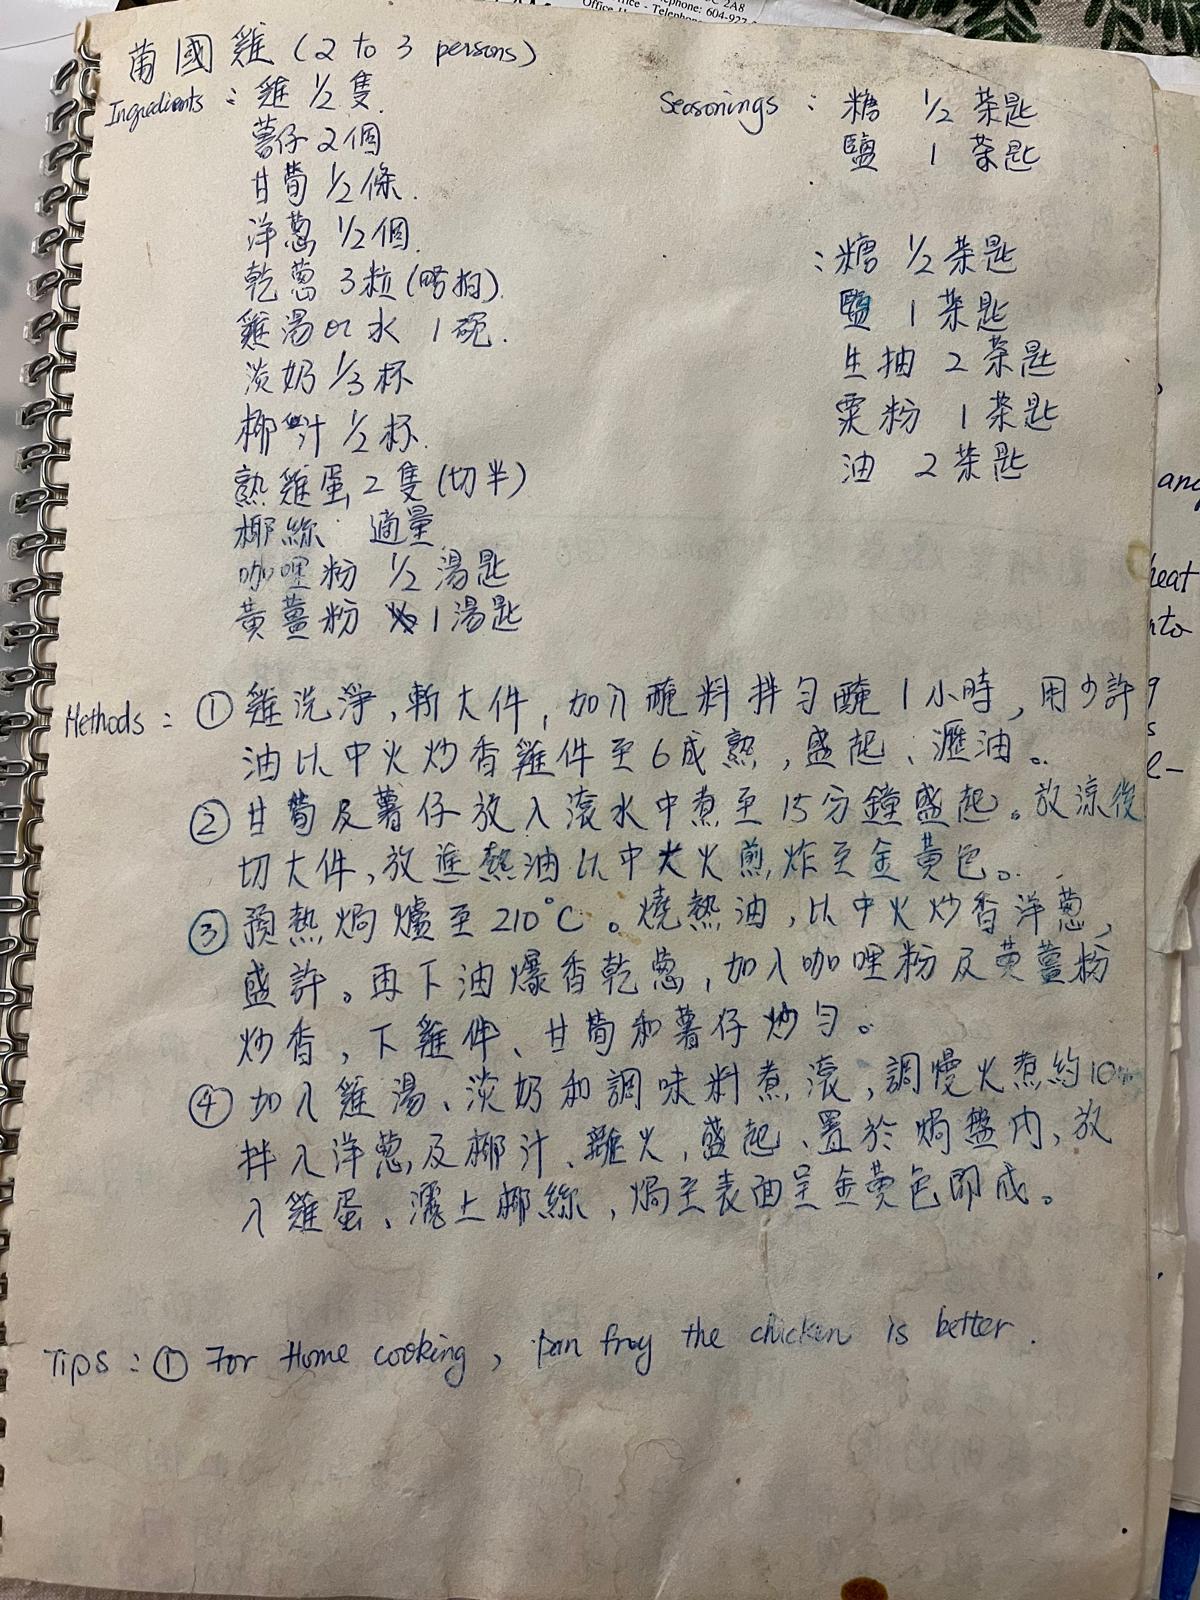 C 2A8
ffice - Telephone: 604-922-
Office H
葡國雞 (2 to 3 persons)
Ingredients : 雞 1/2 隻.
薯仔 2個
甘荀 1/2 條.
洋葱 1/2 個.
乾葱 3粒 (略拍).
雞湯 or 水 1 碗.
淡奶 1/3 杯
椰汁 1/2 杯.
熟雞蛋 2 隻 (切半)
椰絲 適量
咖哩粉 1/2 湯匙
黃薑粉 1 湯匙
Seasonings : 糖 1/2 茶匙
鹽 1 茶匙
: 糖 1/2 茶匙
鹽 1 茶匙
生抽 2 茶匙
粟粉 1 茶匙
油 2 茶匙
Methods : ① 雞洗淨,斬大件,加入醃料拌勻醃1小時,用少許
油以中火炒香雞件至6成熟,盛起、瀝油。
② 甘荀及薯仔放入滾水中煮至15分鐘盛起。放涼後
切大件,放進熱油以中大火煎炸至金黃色。
③ 預熱焗爐至210°C。燒熱油,以中火炒香洋葱,
盛許。再下油爆香乾葱,加入咖哩粉及黃薑粉
炒香,下雞件、甘荀和薯仔炒勻。
④ 加入雞湯、淡奶和調味料煮滾,調慢火煮約10
拌入洋葱及椰汁、離火,盛起、置於焗盤內,放
入雞蛋、灑上椰絲,焗至表面呈金黃色即成。
Tips : ① For Home cooking, pan fry the chicken is better.
and
heat
nto